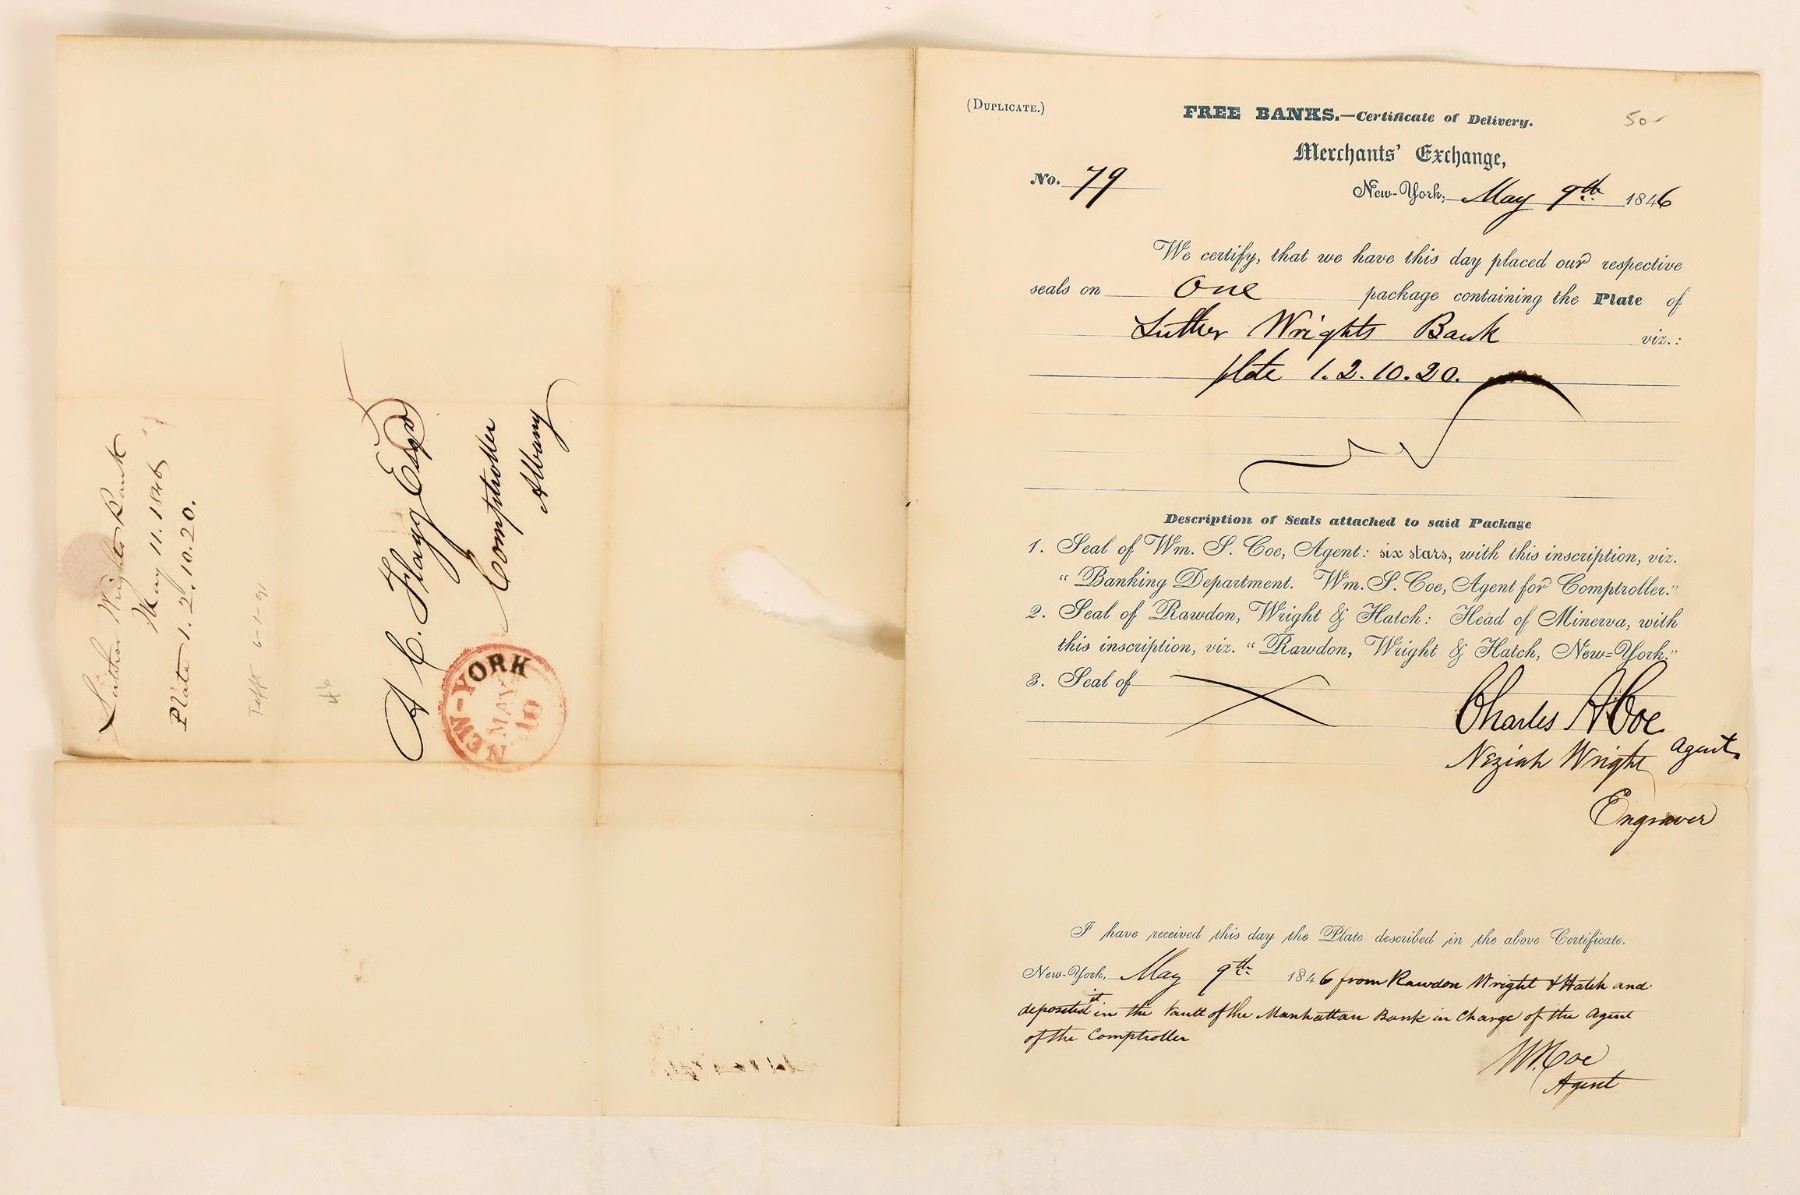 Luther Wrights Bank
May 11. 1846
Plate 1. 2. 10. 20.
Tefft 6-1-91
46
A C. Flagg Esqr
Comptroller
Albany
NEW-YORK
MAY
10
(DUPLICATE.)
FREE BANKS.—Certificate of Delivery.
50-
Merchants' Exchange,
No. 79
New-York, May 9th 1846
We certify, that we have this day placed our respective
seals on One package containing the Plate of
Luther Wrights Bank viz.:
plate 1. 2. 10. 20.
Description of Seals attached to said Package
1. Seal of Wm. S. Coe, Agent: six stars, with this inscription, viz.
"Banking Department. Wm. S. Coe, Agent for Comptroller."
2. Seal of Rawdon, Wright & Hatch: Head of Minerva, with
this inscription, viz. "Rawdon, Wright & Hatch, New-York."
3. Seal of
Charles A Coe
Agent
Neziah Wright
Engraver
I have received this day the Plate described in the above Certificate.
New-York, May 9th 1846 from Rawdon Wright & Hatch and
deposited it in the Vault of the Manhattan Bank in Charge of the Agent
of the Comptroller
Coe
Agent